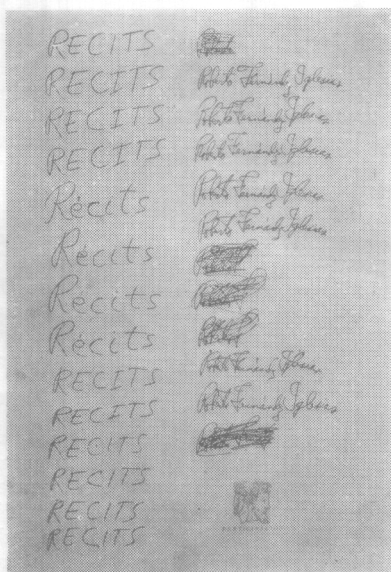 RECITS
RECITS Roberto Fernández Iglesias
RECITS Roberto Fernández Iglesias
RECITS Roberto Fernández Iglesias
Récits Roberto Fernández Iglesias
Récits Roberto Fernández Iglesias
Récits
Récits
RECITS Roberto Fernández Iglesias
RECITS Roberto Fernández Iglesias
RECITS
RECITS
RECITS
RECITS